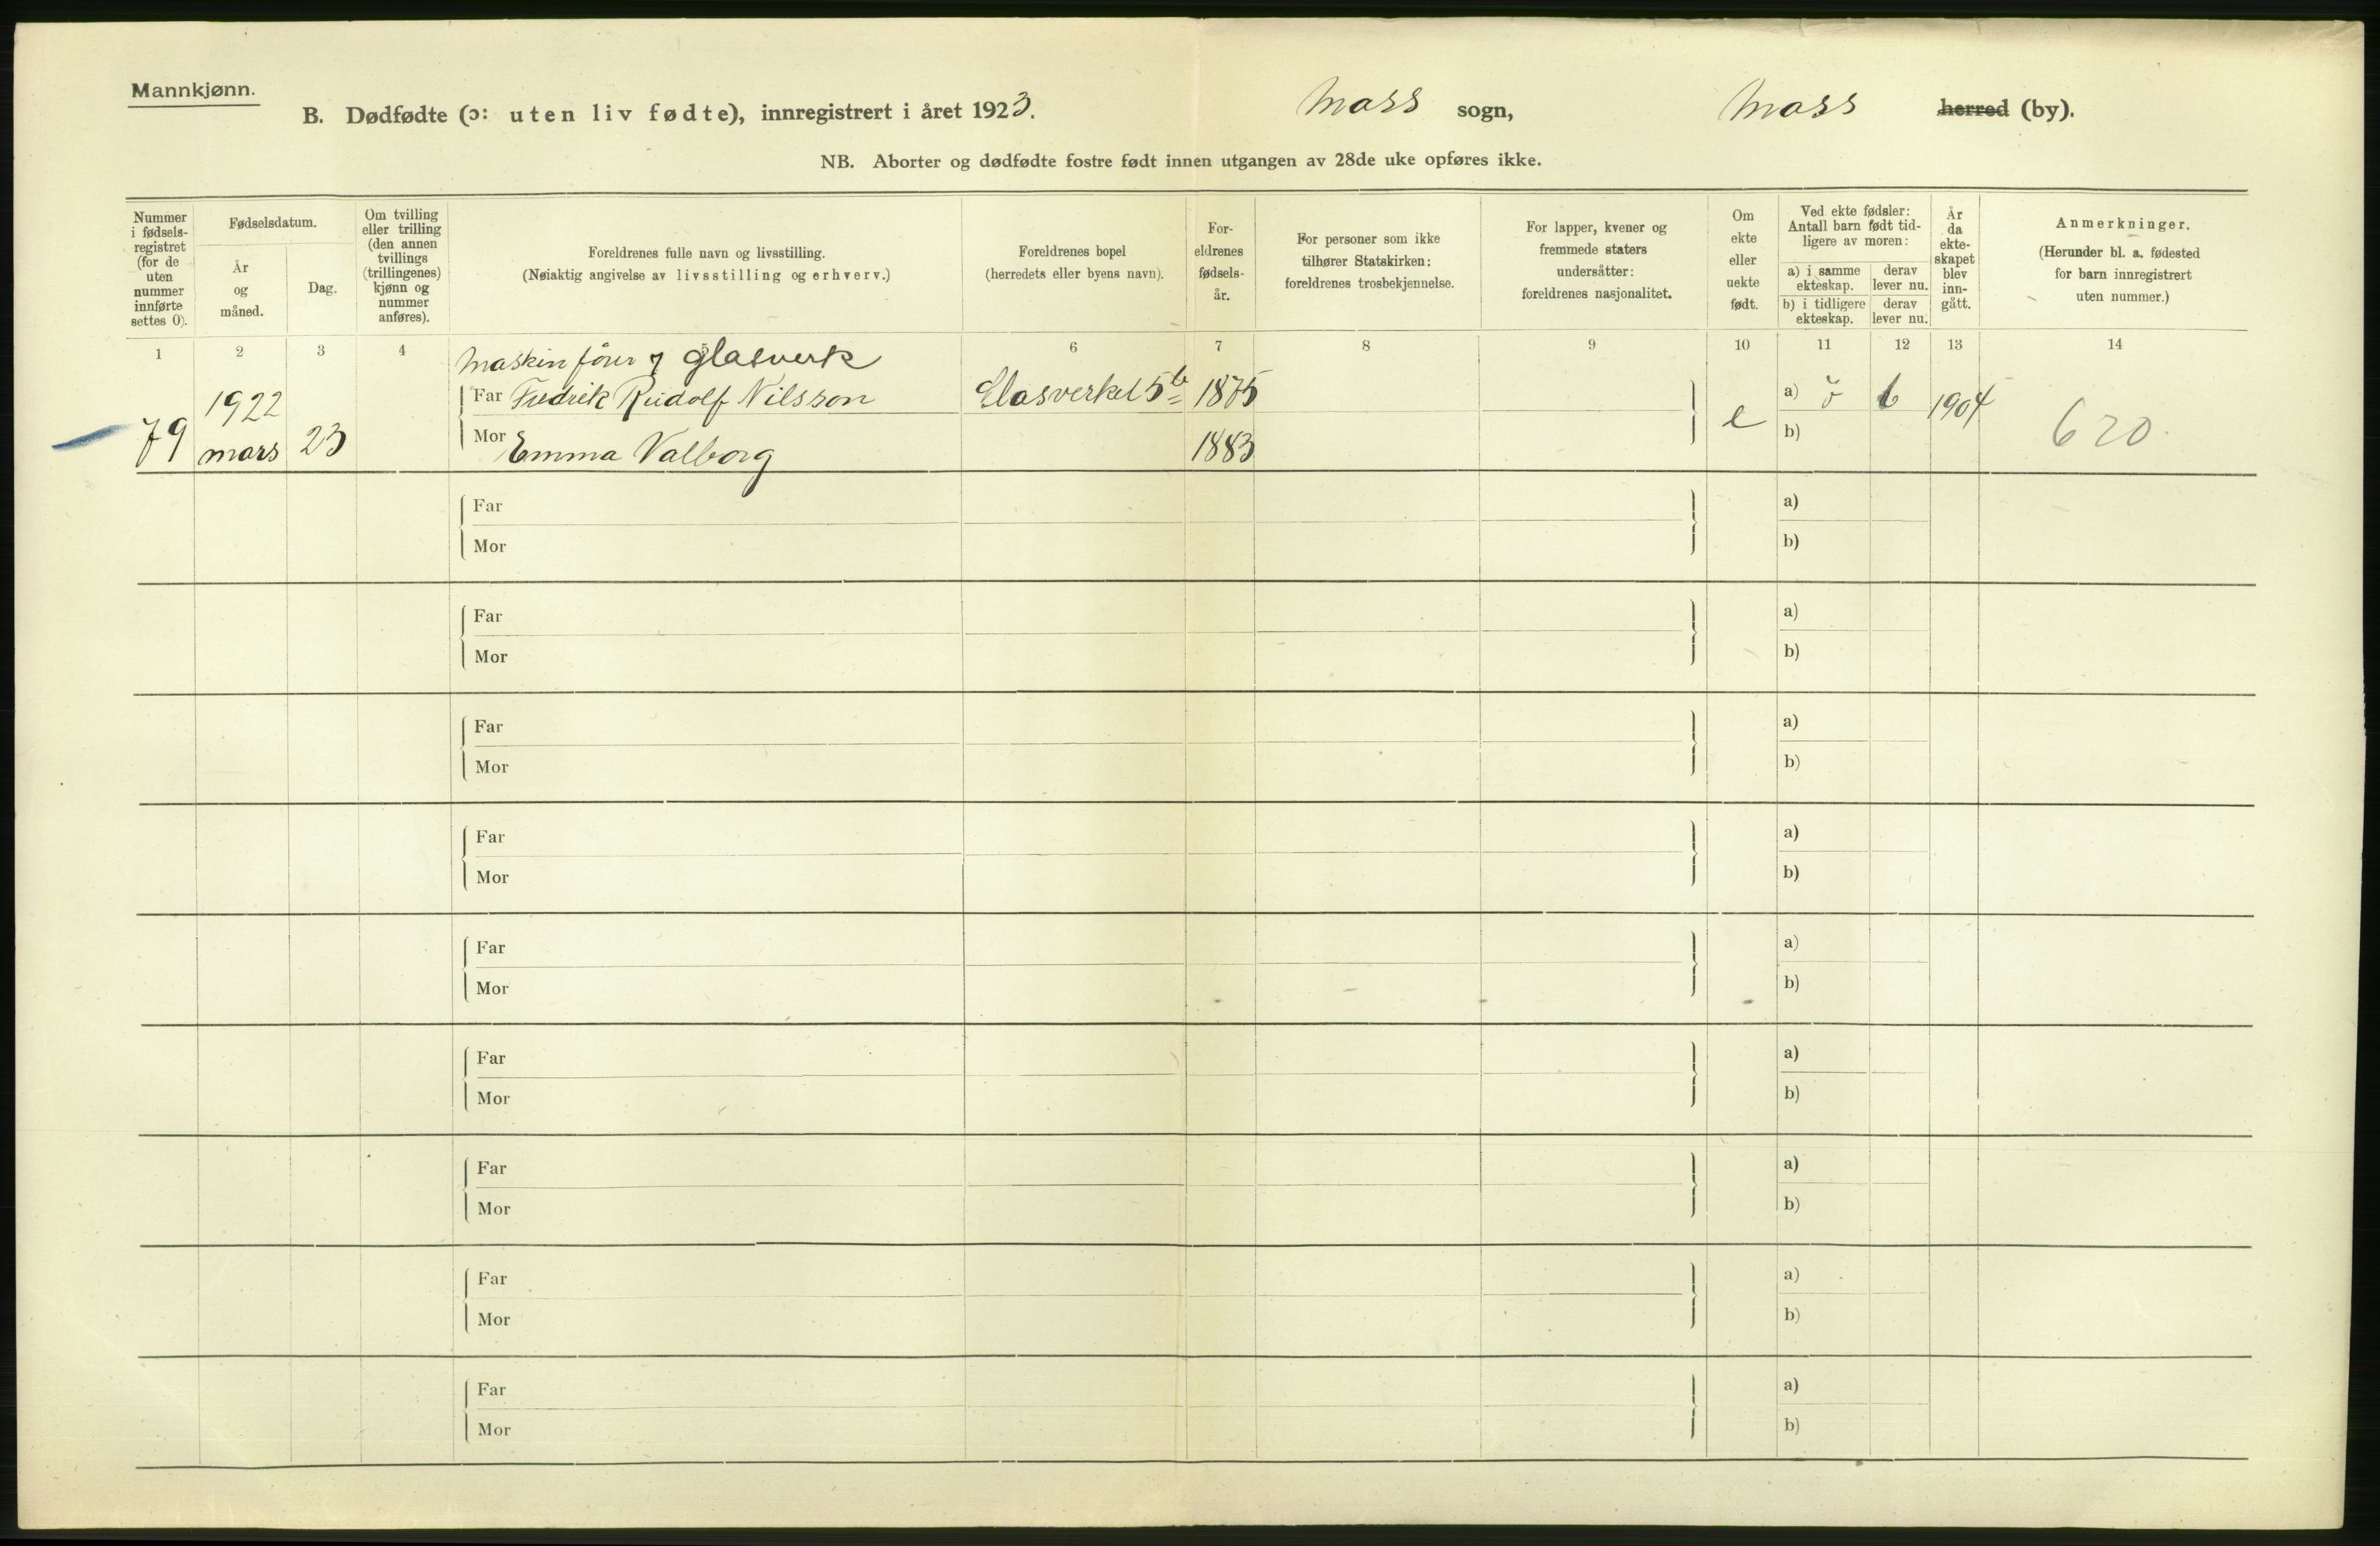 Mannkjønn.
B. Dødfødte (ɔ: uten liv fødte), innregistrert i året 1923. Moss sogn, Moss herred (by).
NB. Aborter og dødfødte fostre født innen utgangen av 28de uke opføres ikke.
Nummer i fødsels-registret (for de uten nummer innførte settes 0).
Fødselsdatum.
År og måned.
Dag.
Om tvilling eller trilling (den annen tvillings (trillingenes) kjønn og nummer anføres).
Foreldrenes fulle navn og livsstilling.
(Nøiaktig angivelse av livsstilling og erhverv.)
Foreldrenes bopel
(herredets eller byens navn).
For-eldrenes fødsels-år.
For personer som ikke tilhører Statskirken: foreldrenes trosbekjennelse.
For lapper, kvener og fremmede staters undersåtter: foreldrenes nasjonalitet.
Om ekte eller uekte født.
Ved ekte fødsler: Antall barn født tid-ligere av moren:
a) i samme ekteskap. derav lever nu.
b) i tidligere ekteskap. derav lever nu.
År da ekte-skapet blev inn-gått.
Anmerkninger.
(Herunder bl. a. fødested for barn innregistrert uten nummer.)
1 2 3 4 5 6 7 8 9 10 11 12 13 14
Maskinfører glasverk
1922 Far Fredrik Rudolf Nilsson Glasverket 5b 1875 e a) 6 1904 620
79 mars 23 Mor Emma Valborg 1883 b)
Far a)
Mor b)
Far a)
Mor b)
Far a)
Mor b)
Far a)
Mor b)
Far a)
Mor b)
Far a)
Mor b)
Far a)
Mor b)
Far a)
Mor b)
Far a)
Mor b)